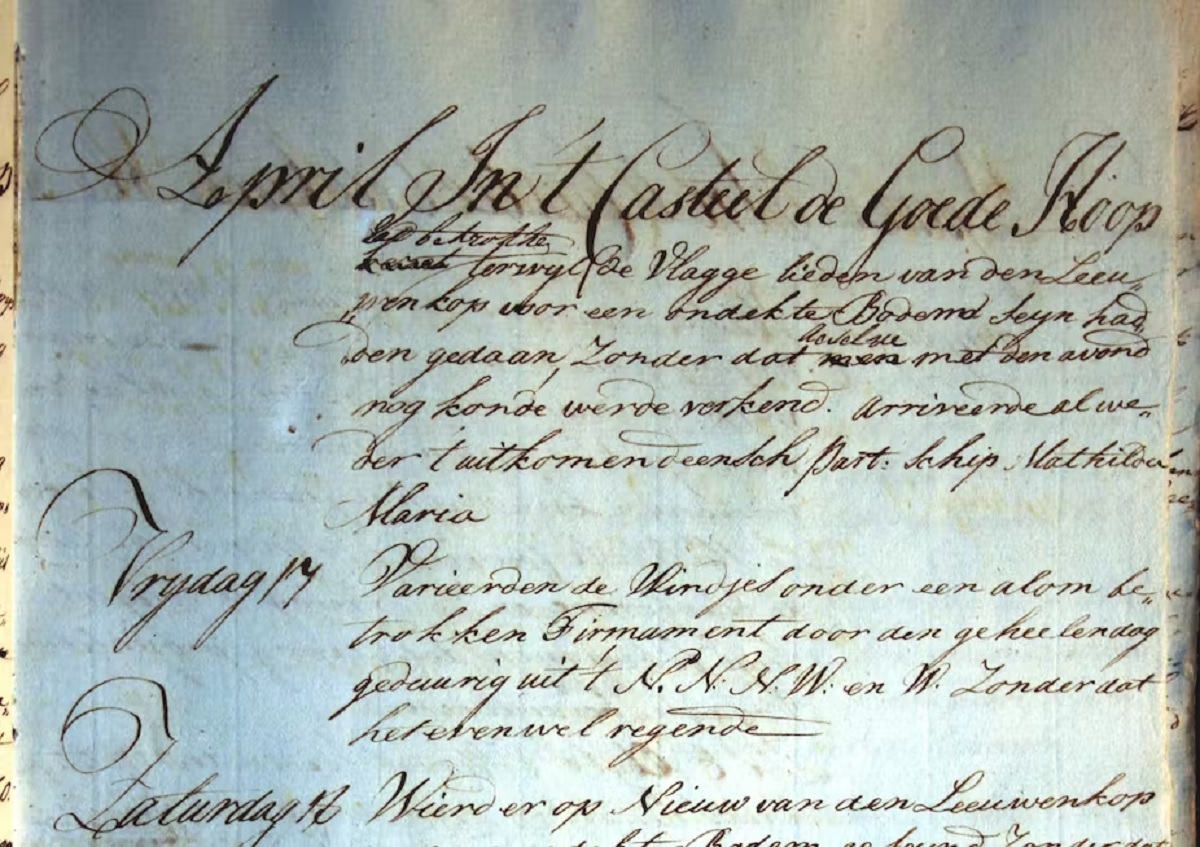 April In't Casteel de Goede Hoop
terwyl de Vlagge lieden van den Leeu„
„wenkop voor een ondekte Bodems seyn had„
den gedaan, Zonder dat deselve men met den avond
nog konde werde verkend. Arriveerde alwe„
der t uitkomen deensch Part: schip Mathilda
Maria
Vrydag 17 Varieerden de Windjes onder een alom be„
trokken Firmament door den geheelen dag
geduurig uit 't N. N. N. W. en W. Zonder dat
het evenwel regende
Zaturdag 18 Wierd er op Nieuw van den Leeuwenkop
Bodem Zonder dat